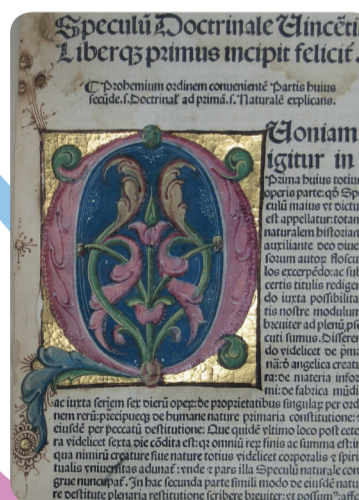 Speculū Doctrinale Uincēti
Liberqȝ primus incipit felicit
¶ Prohemium ordinem conuenientē Partis huius
secūde.s.Doctrinal' ad primā.s.Naturalē explicans.
Uoniam
igitur in
Prima huius totiu
operis parte:qō Spe
culū maius vt dictu
est appellatur:totam
naturalem historiam
auxiliante deo diuer
sorum autoꝝ flosculi
los excerpēdo:ac sub
certis titulis redigen
do iuxta possibilita
tis nostre modulum
breuiter ad plenū pro
cuti sumus.Disseren
do videlicet de prim
nā:d angelica creatu
ra:de materia infor
mi:de fabrica mūdi
ac iuxta seriem sex dierū opeꝝ:de proprietatibus singulaꝝ:per od
nem rerū:precipueqȝ de humane nature primaria constitutione:
eiusdē per peccatū destitutione:Que quidē vltimo loco post cete
ra videlicet sexta die cōdita est:qꝛ omniū reꝝ finis ac summa est:i
qua nimirū creature siue nature totius videlicet corporalis ⁊ spiri
tualis vniuersitas adunat':vnde ⁊ pars illa Speculū naturale con
grue nuncupat'.In hac secunda parte simili modo de eiusdē
re destitute plenaria restitutione scribere breuiter:vt possum'